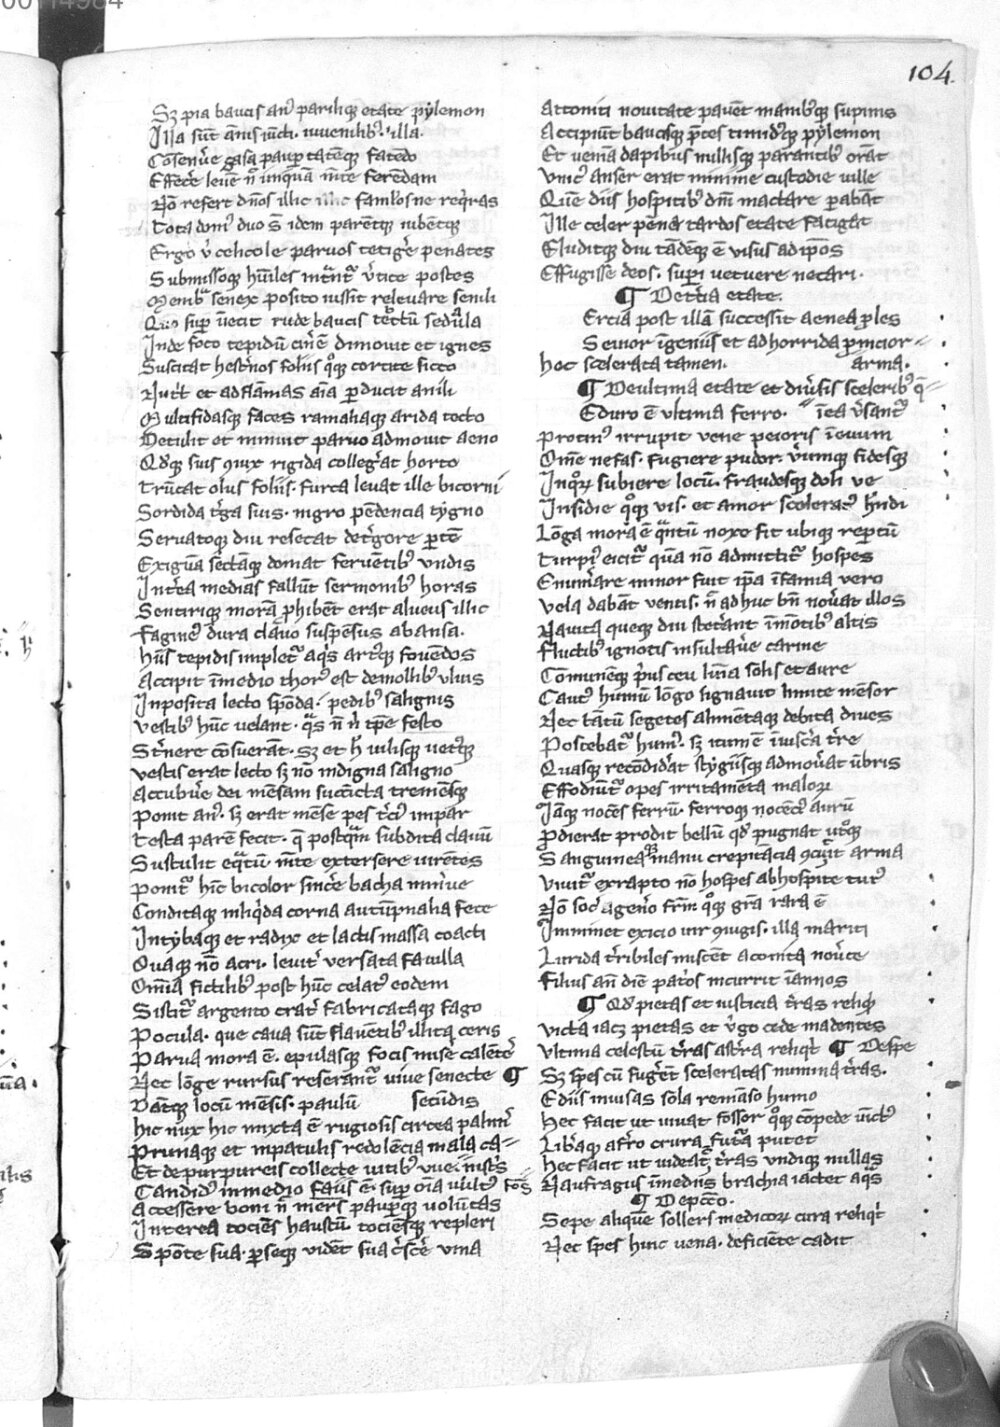 104
Sꝫ pia baucis anꝰ parilique etate pylemon
Illa sūt ānis iūcti. iuuenilibꝰ illa.
Cōsenuēre casa paupertatēque fatēdo
Effecēre leuē nō iniquā mēte ferēdam
Nō refert dnōs illic famulosne reqͥras
Tota domꝰ duo sūt idem parētque iubētque
Ergo ubi celicole paruos tetigēre penates
Submissoque humiles intrarūt uertice postes
Membra senex posito iussit releuare sedili
Quo super iniecit rude baucis textū sedula
Inde foco tepidū cinerē dimouit et ignes
Suscitat hesternos foliis que cortice sicco
Nutrit et ad flāmas anima perducit anili
Multifidasque faces ramaliaque arida tecto
Detulit et minuit paruo admouit aeno
Qdque suus ↄiux rigida collegerat horto
Trūcat olus foliis. furca leuat ille bicorni
Sordida terga suis. nigro pēdencia tygno
Seruatoque diu resecat de tergore partē
Exiguā sectāque domat feruētibꝰ undis
Interea medias fallūt sermonibꝰ horas
Sentirique morā prohibēt erat alueus illic
Fagineꝰ dura clauo suspēsus ab ansa.
Hiis tepidis impletur aqis artꝰque fouēdos
Accipit in medio thorꝰ est de mollibꝰ uluis
Inposita lecto spōda. pedibꝰ salignis
Vestibꝰ hūc uelant. qͣs nō nisi tpe festo
Sternere cōsuerāt. sꝫ et hec uilisque uetꝰque
Vestis erat lecto sꝫ nō indigna saligno
Accubuēre dei mēsam succīcta tremēsque
Ponit anꝰ. sꝫ erat mēse pes tercꝰ impar
Testa parē fecit. que postqͣm subdita clauū
Sustulit eqͣtū mēte extersere uirētes
Ponitur hic bicolor sincere bacha minerue
Conditaque in liqͥda corna autūpnalia fece
Intybaque et radix et lactis massa coacti
Ouaque nō acri. leuiter uersata fauilla
Omīa fictilibꝰ post hūc celatꝰ eodem
Sistitur argento crater fabricataque fago
Pocula. que caua sūt flauētibꝰ illita ceris
Parua mora ē. epulasque foci misere calētes
Nec lōge rursus referantur uina senecte ¶
Dātque locū mēsis. paulū secūdis
Hic nux hic mixta ē rugosis carica palmis
Prunaque et in patulis redolēcia mala ca-
Et de purpureis collecte uitibꝰ uue. nistris
Candidꝰ in medio fauus ē. super oīa uultꝰ
Accessere boni nec iners pauperque uolūtas
Interea tociēs haustū tociēsque repleri
Spōte sua. per seque uidēt succrescere uina
attoniti nouitate pauēt manibꝰque supinis
Accipiūt baucisque preces timidꝰque pylemon
Et ueniā dapibus nullisque paratibꝰ orāt
Vnicꝰ anser erat minime custodie uille
Quē diis hospitibꝰ dnī mactare parabāt
Ille celer pēna tardos etate fatigat
Eluditque diu tādēque ē uisus ad ipos
Effugisse deos. superi uetuere necari.
¶ De tercia etate.
Ercia post illā successit aenea proles
Seuior īgeniis et ad horrida prompcior
hec scelerata tamen. arma.
¶ De ultima etate et diuersis sceleribꝰ que
E duro ē ultima ferro. in ea uersantur
Protinꝰ irrupit uene peioris ī euum
Ome nefas. fugiere pudor. uerumque fidesque
In quorum subiere locū. fraudesque doli ue
Insidie que uis. et amor sceleratꝰ habendi
Lōga mora ē quātū noxe sit ubique repertū
Turpiter eicitur quā nō admittitur hospes
Enumerare minor fuit ipa īfamia uero
Vela dabāt uentis. nec adhuc bn nouerat illos
Nauita queque diu steterant ī mōtibꝰ altis
Fluctibꝰ ignotis insultauēre carine
Comunēque prius ceu lumīa solis et aure
Cautꝰ humū lōgo signauit limite mēsor
Nec tātū segetes alimētaque debita diues
Poscebatur humꝰ. sꝫ itum ē ī uiscera terre
Quasque recōdiderat stygiisque admouerat ūbris
Effodiūtur opes irritamēta malorum
Iāque nocēs ferrū. ferroque nocēcius aurū
Prodierat prodit bellū qd pugnat utroque
Sanguineaque manu crepitācia ↄcutit arma
Viuitur ex rapto nō hospes ab hospite tutꝰ
Nō socer a genero frm quoque gra rara ē
Imminet exicio uir ↄiugis. illa mariti
Lurida terribiles miscēt aconita nouerce
Filius an diē patrios incurrit ī annos
¶ Qd pietas et iusticia terras reliqͥt
Victa iacet pietas et uirgo cede madentes
Vltima celestū terras astrea reliqͥt ¶ De spe
Sꝫ spes cū fugerēt sceleratas numina terras.
E diis inuisas sola remāsit humo
Hec facit ut uiuat fossor quoque cōpede uīctꝰ
Liberaque a ferro crura futura putet
Hec facit ut uideat terras undique nullas
Naufragus ī mediis brachia iactet aqis
¶ De peccō.
Sepe aliquē sollers medicorum cura reliqͥt
Nec spes huic uena. deficiēte cadit